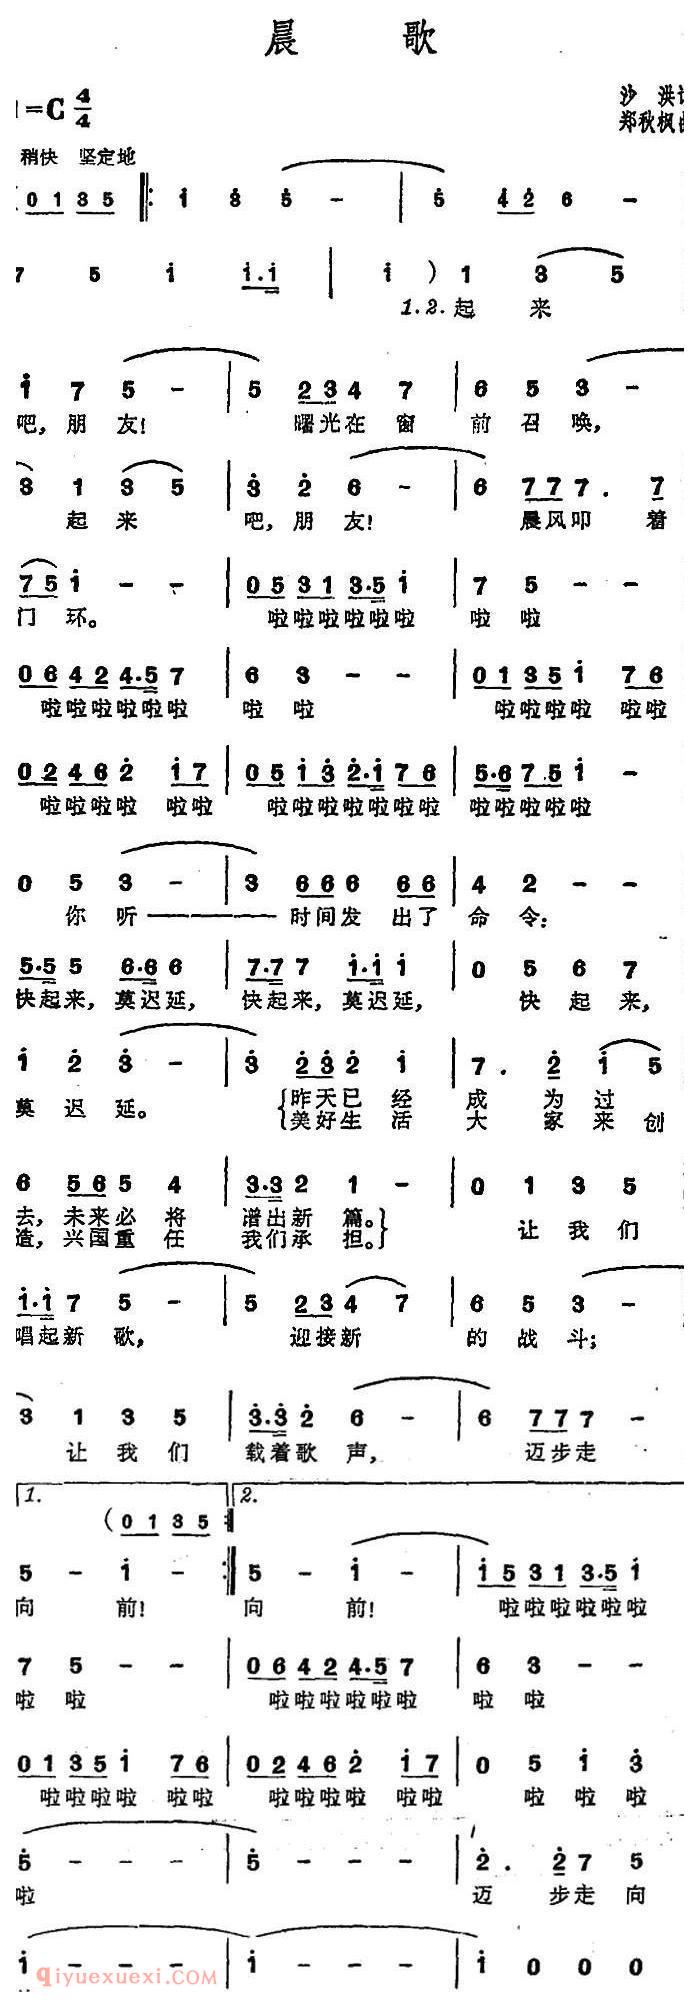 晨 歌
=C 4/4
沙 洪
郑秋枫
稍快 坚定地
0 1 3 5 1 3 5 - 5 4 2 6 -
7 5 1 1.1 1 ) 1 3 5
1.2.起 来
1 7 5 - 5 2 3 4 7 6 5 3 -
吧，朋 友！ 曙光在 窗 前 召 唤，
3 1 3 5 3 2 6 - 6 7 7 7. 7
起 来 吧，朋 友！ 晨风叩 着
7 5 1 - - 0 5 3 1 3.5 1 7 5 - -
门 环。 啦啦啦啦啦啦 啦 啦
0 6 4 2 4.5 7 6 3 - - 0 1 3 5 1 7 6
啦啦啦啦啦啦 啦 啦 啦啦啦啦 啦啦
0 2 4 6 2 1 7 0 5 1 3 2.1 7 6 5.6 7 5 1 -
啦啦啦啦 啦啦 啦啦啦啦啦啦啦 啦啦啦啦啦
0 5 3 - 3 6 6 6 6 6 4 2 - -
你 听——— 时间发 出了 命 令：
5.5 5 6.6 6 7.7 7 1.1 1 0 5 6 7
快起来，莫迟延， 快起来，莫迟延， 快 起 来，
1 2 3 - 3 2 3 2 1 7. 2 1 5
莫 迟 延。 昨天已 经 成 为 过
美好生 活 大 家 来 创
6 5 6 5 4 3.3 2 1 - 0 1 3 5
去，未来必 将 谱出新 篇。 让 我 们
造，兴国重 任 我们承 担。
1.1 7 5 - 5 2 3 4 7 6 5 3 -
唱起新 歌， 迎接新 的 战 斗；
3 1 3 5 3.3 2 6 - 6 7 7 7 -
让 我 们 载着歌 声， 迈步走
1. (0 1 3 5 2.
5 - 1 - 5 - 1 - 1 5 3 1 3.5 1
向 前！ 向 前！ 啦啦啦啦啦啦
7 5 - - 0 6 4 2 4.5 7 6 3 - -
啦 啦 啦啦啦啦啦啦 啦 啦
0 1 3 5 1 7 6 0 2 4 6 2 1 7 0 5 1 3
啦啦啦啦 啦啦 啦啦啦啦 啦啦 啦 啦 啦
5 - - - 5 - - - 2. 2 7 5
啦 迈 步走 向
1 - - - 1 - - - 1 0 0 0
qiyuexuexi.com